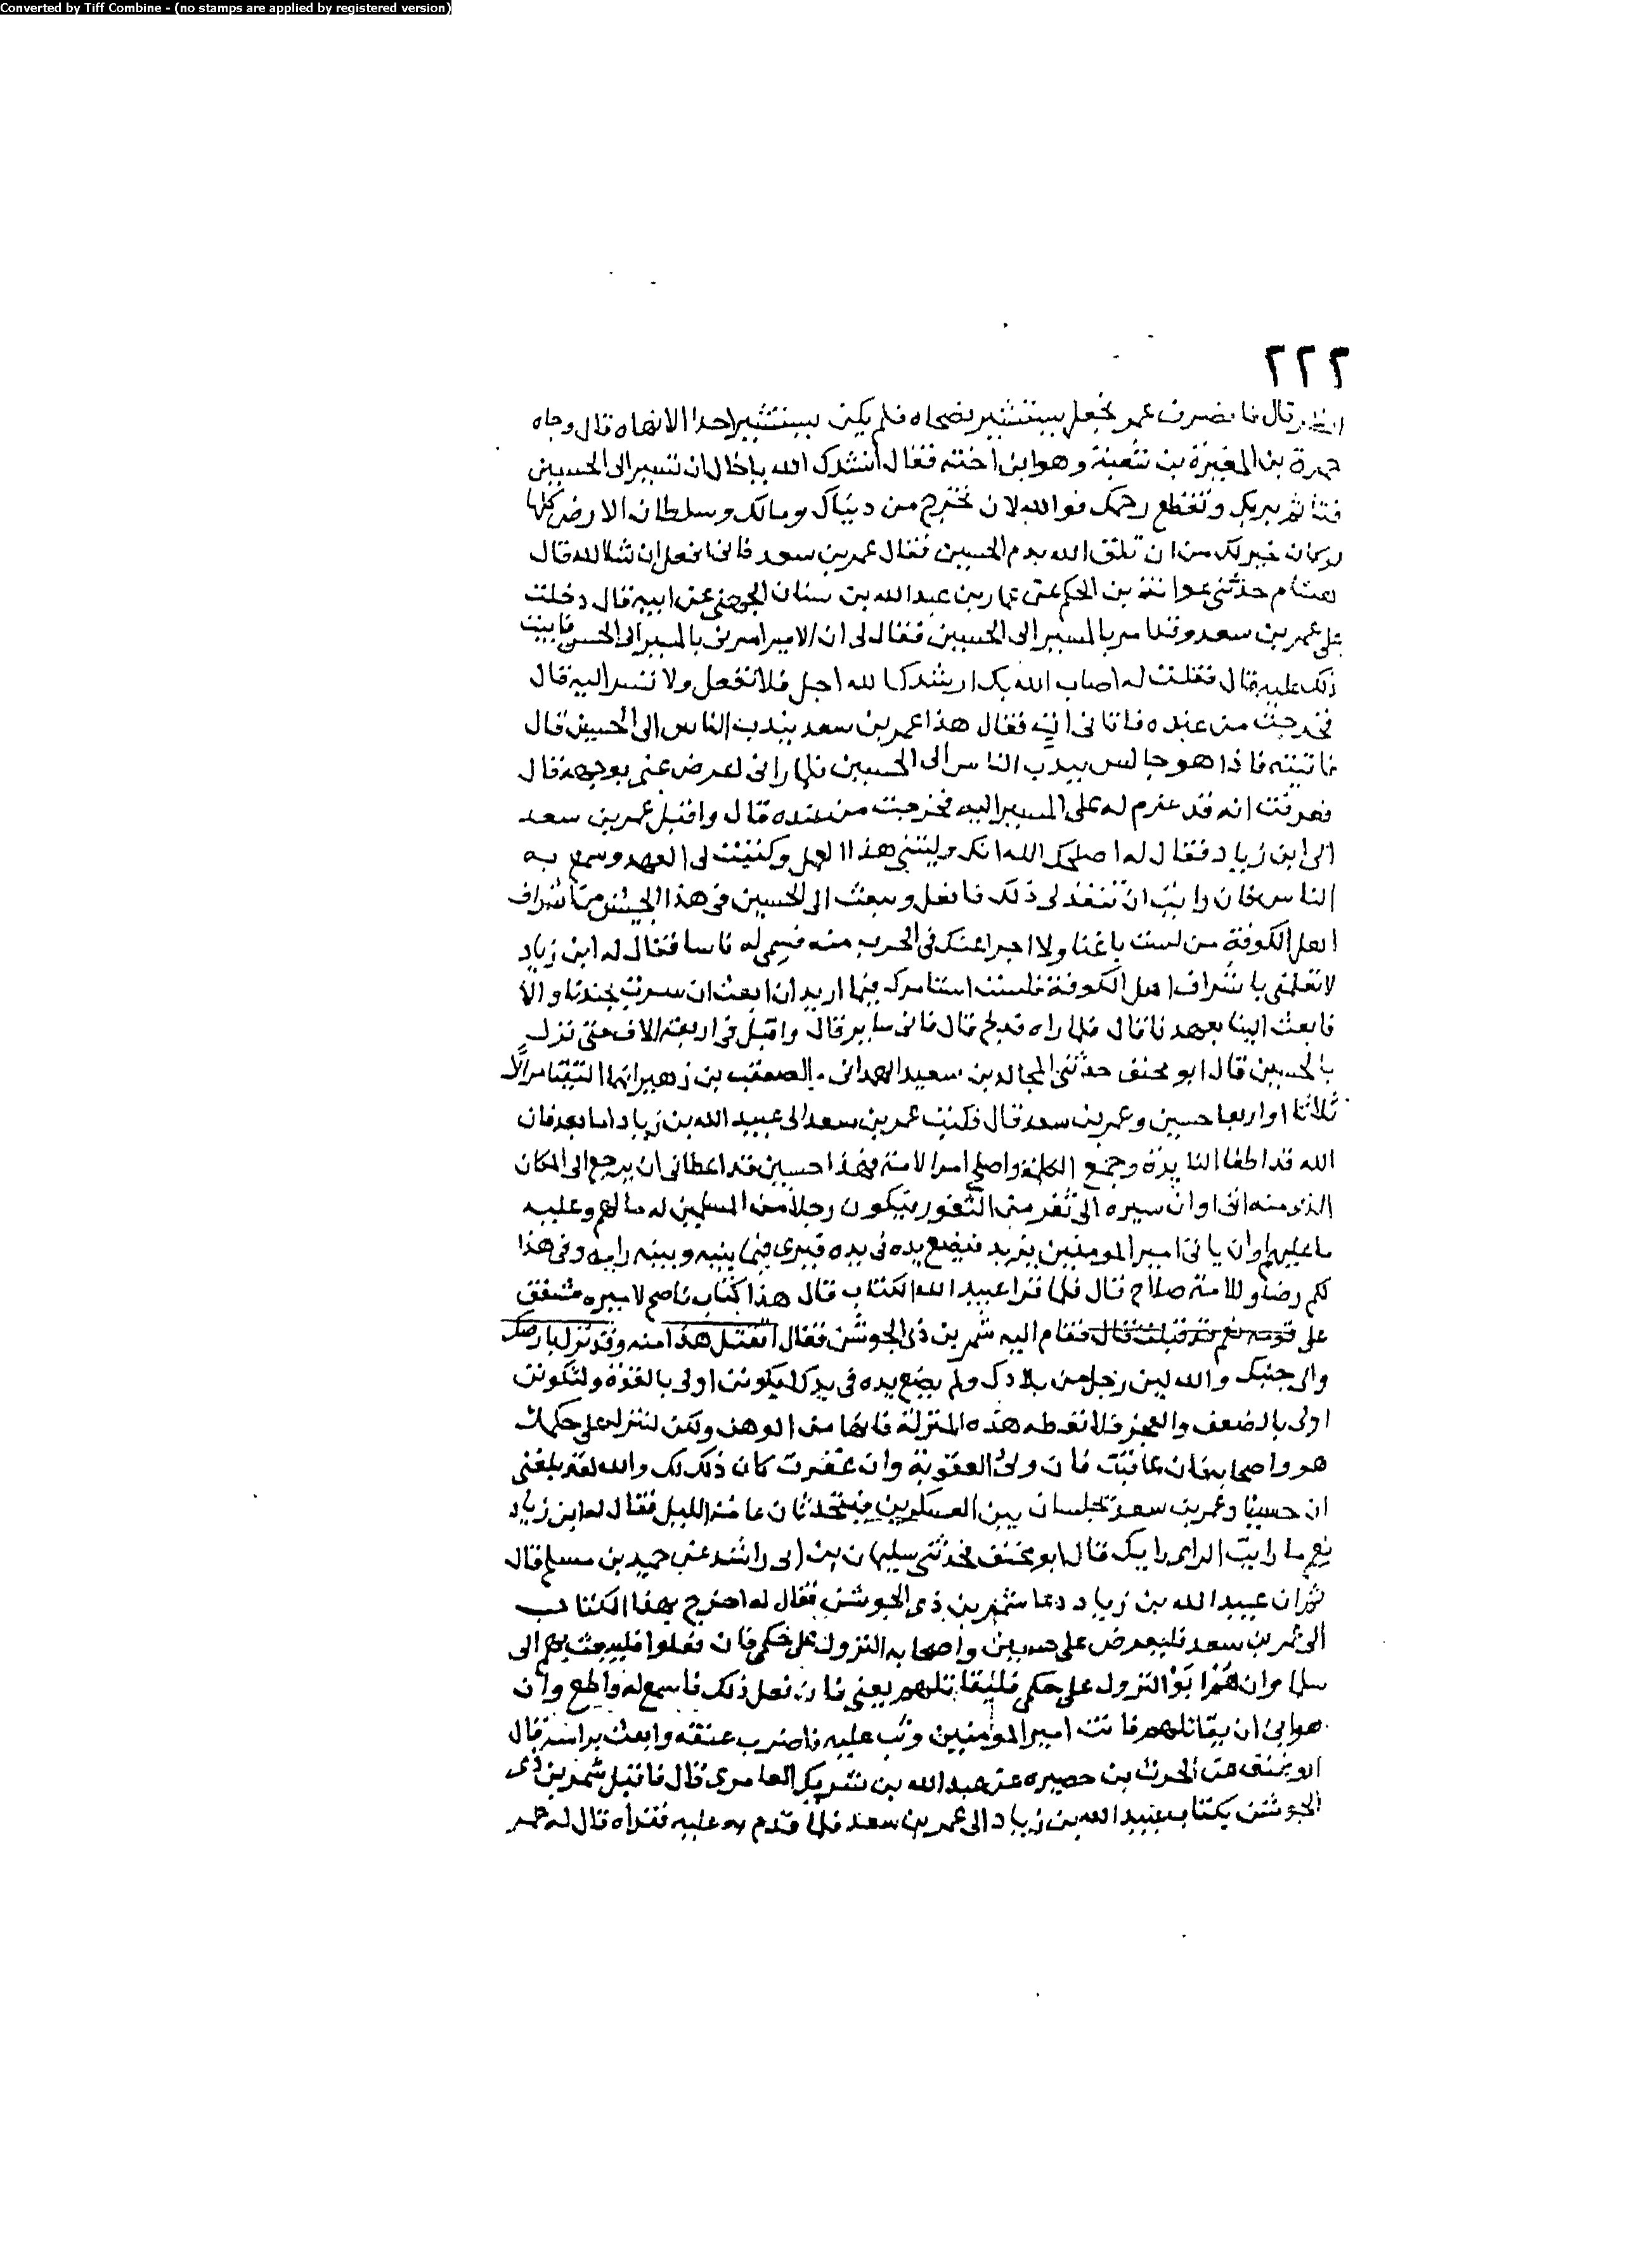 Converted by Tiff Combine - (no stamps are applied by registered version)
٢٢٢
انظر قال فانصرف عمر فجعل يستشير نصحاه فلم يكن يستشير احدا الا نهاه قال وجاه
حمزة بن المغيرة بن شعبة وهو ابن اخته فقال أنشدك الله ياخال ان تسير الى الحسين
فتاثم بربك وتقطع رحمك فوالله لان تخرج من دنياك ومالك وسلطان الارض كلها
لو كان خير لك من ان تلقى الله بدم الحسين فقال عمر بن سعد فانى افعل ان شا الله قال
هشام حدثنى عوانة بن الحكم عن عمار بن عبد الله بن سنان الجهنى عن ابيه قال دخلت
على عمر بن سعد وقد امر بالمسير الى الحسين فقال لى ان الامير امرنى بالمسير الى الحسين فابيت
ذلك عليه قال فقلت له اصاب الله بك ارشدك الله اجل فلا تفعل ولا تسر اليه قال
فخرجت من عنده فاتانى ات فقال هذا عمر بن سعد يندب الناس الى الحسين قال
فاتيته فاذا هو جالس يندب الناس الى الحسين فلما رانى اعرض عنى بوجهه قال
فعرفت انه قد عزم له على المسير اليه فخرجت من عنده قال واقبل عمر بن سعد
الى ابن زياد فقال له اصلحك الله انك وليتنى هذا العمل وكتبت لى العهد وسمع به
الناس فان رايت ان تنفذ لى ذلك فافعل وبعث الى الحسين فى هذا الجيش من اشراف
اهل الكوفة من لست باغنا ولا اجرا عنك فى الحرب منه فسمى له ناسا فقال له ابن زياد
لا تعلمنى باشراف اهل الكوفة فلست استامرك فيما اريد ان ابعث ان سرت بجندنا والا
فابعث الينا بعهدنا قال فلما راه قد لج قال فانى ساير قال واقبل فى اربعة الاف حتى نزل
بالحسين قال ابو مخنف حدثنى المجالد بن سعيد الهمدانى والصقعب بن زهير انهما التقيا مرارا
ثلاثا او اربعا حسين وعمر بن سعد قال فكتب عمر بن سعد الى عبيد الله بن زياد اما بعد فان
الله قد اطفا النايرة وجمع الكلمة واصلح امر الامة فهذا حسين قد اعطانى ان يرجع الى المكان
الذى منه اتى او ان سيره الى ثغر من الثغور فيكون رجلا من المسلمين له ما لهم وعليه
ما عليهم او ان ياتى امير المومنين يزيد فيضع يده فى يده فيرى فيما بينه وبينه رايه وفى هذا
لكم رضا وللامة صلاح قال فلما قرا عبيد الله الكتاب قال هذا كتاب ناصح لاميره مشفق
على قومه نعم قد قبلت قال فقام اليه شمر بن ذى الجوشن فقال اتقبل هذا منه وقد نزل بارضك
والى جنبك والله لين رحل من بلادك ولم يضع يده فى يدك ليكونن اولى بالقوة ولتكونن
اولى بالضعف والعجز فلا تعطه هذه المنزلة فانها من الوهن ولكن لينزل على حكمك
هو واصحابه فان عاقبت فانت ولى العقوبة وان غفرت كان ذلك لك والله لقد بلغنى
ان حسينا وعمر بن سعد يجلسان بين العسكرين فيتحدثان عامة الليل فقال له ابن زياد
نعم ما رايت الراى رايك قال ابو مخنف فحدثنى سليمان بن ابى راشد عن حميد بن مسلم قال
ثم ان عبيد الله بن زياد دعا شمر بن ذى الجوشن فقال له اخرج بهذا الكتاب
الى عمر بن سعد فليعرض على حسين واصحابه النزول على حكمى فان فعلوا فليبعث بهم الى
سلما وان هم ابوا النزول على حكمى فليقاتلهم يعنى فان فعل ذلك فاسمع له واطع وان
هو ابى ان يقاتلهم فانت امير المومنين وثب عليه فاضرب عنقه وابعث براسه قال
ابو مخنف عن الحرث بن حصيره عن عبد الله بن شريك العامرى قال فاقبل شمر بن ذى
الجوشن بكتاب عبيد الله بن زياد الى عمر بن سعد فلما قدم به عليه فقراه قال له عمر